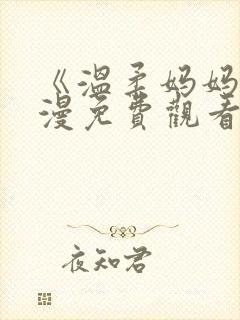 《溫柔妈妈
漫免費觀看
夜知君